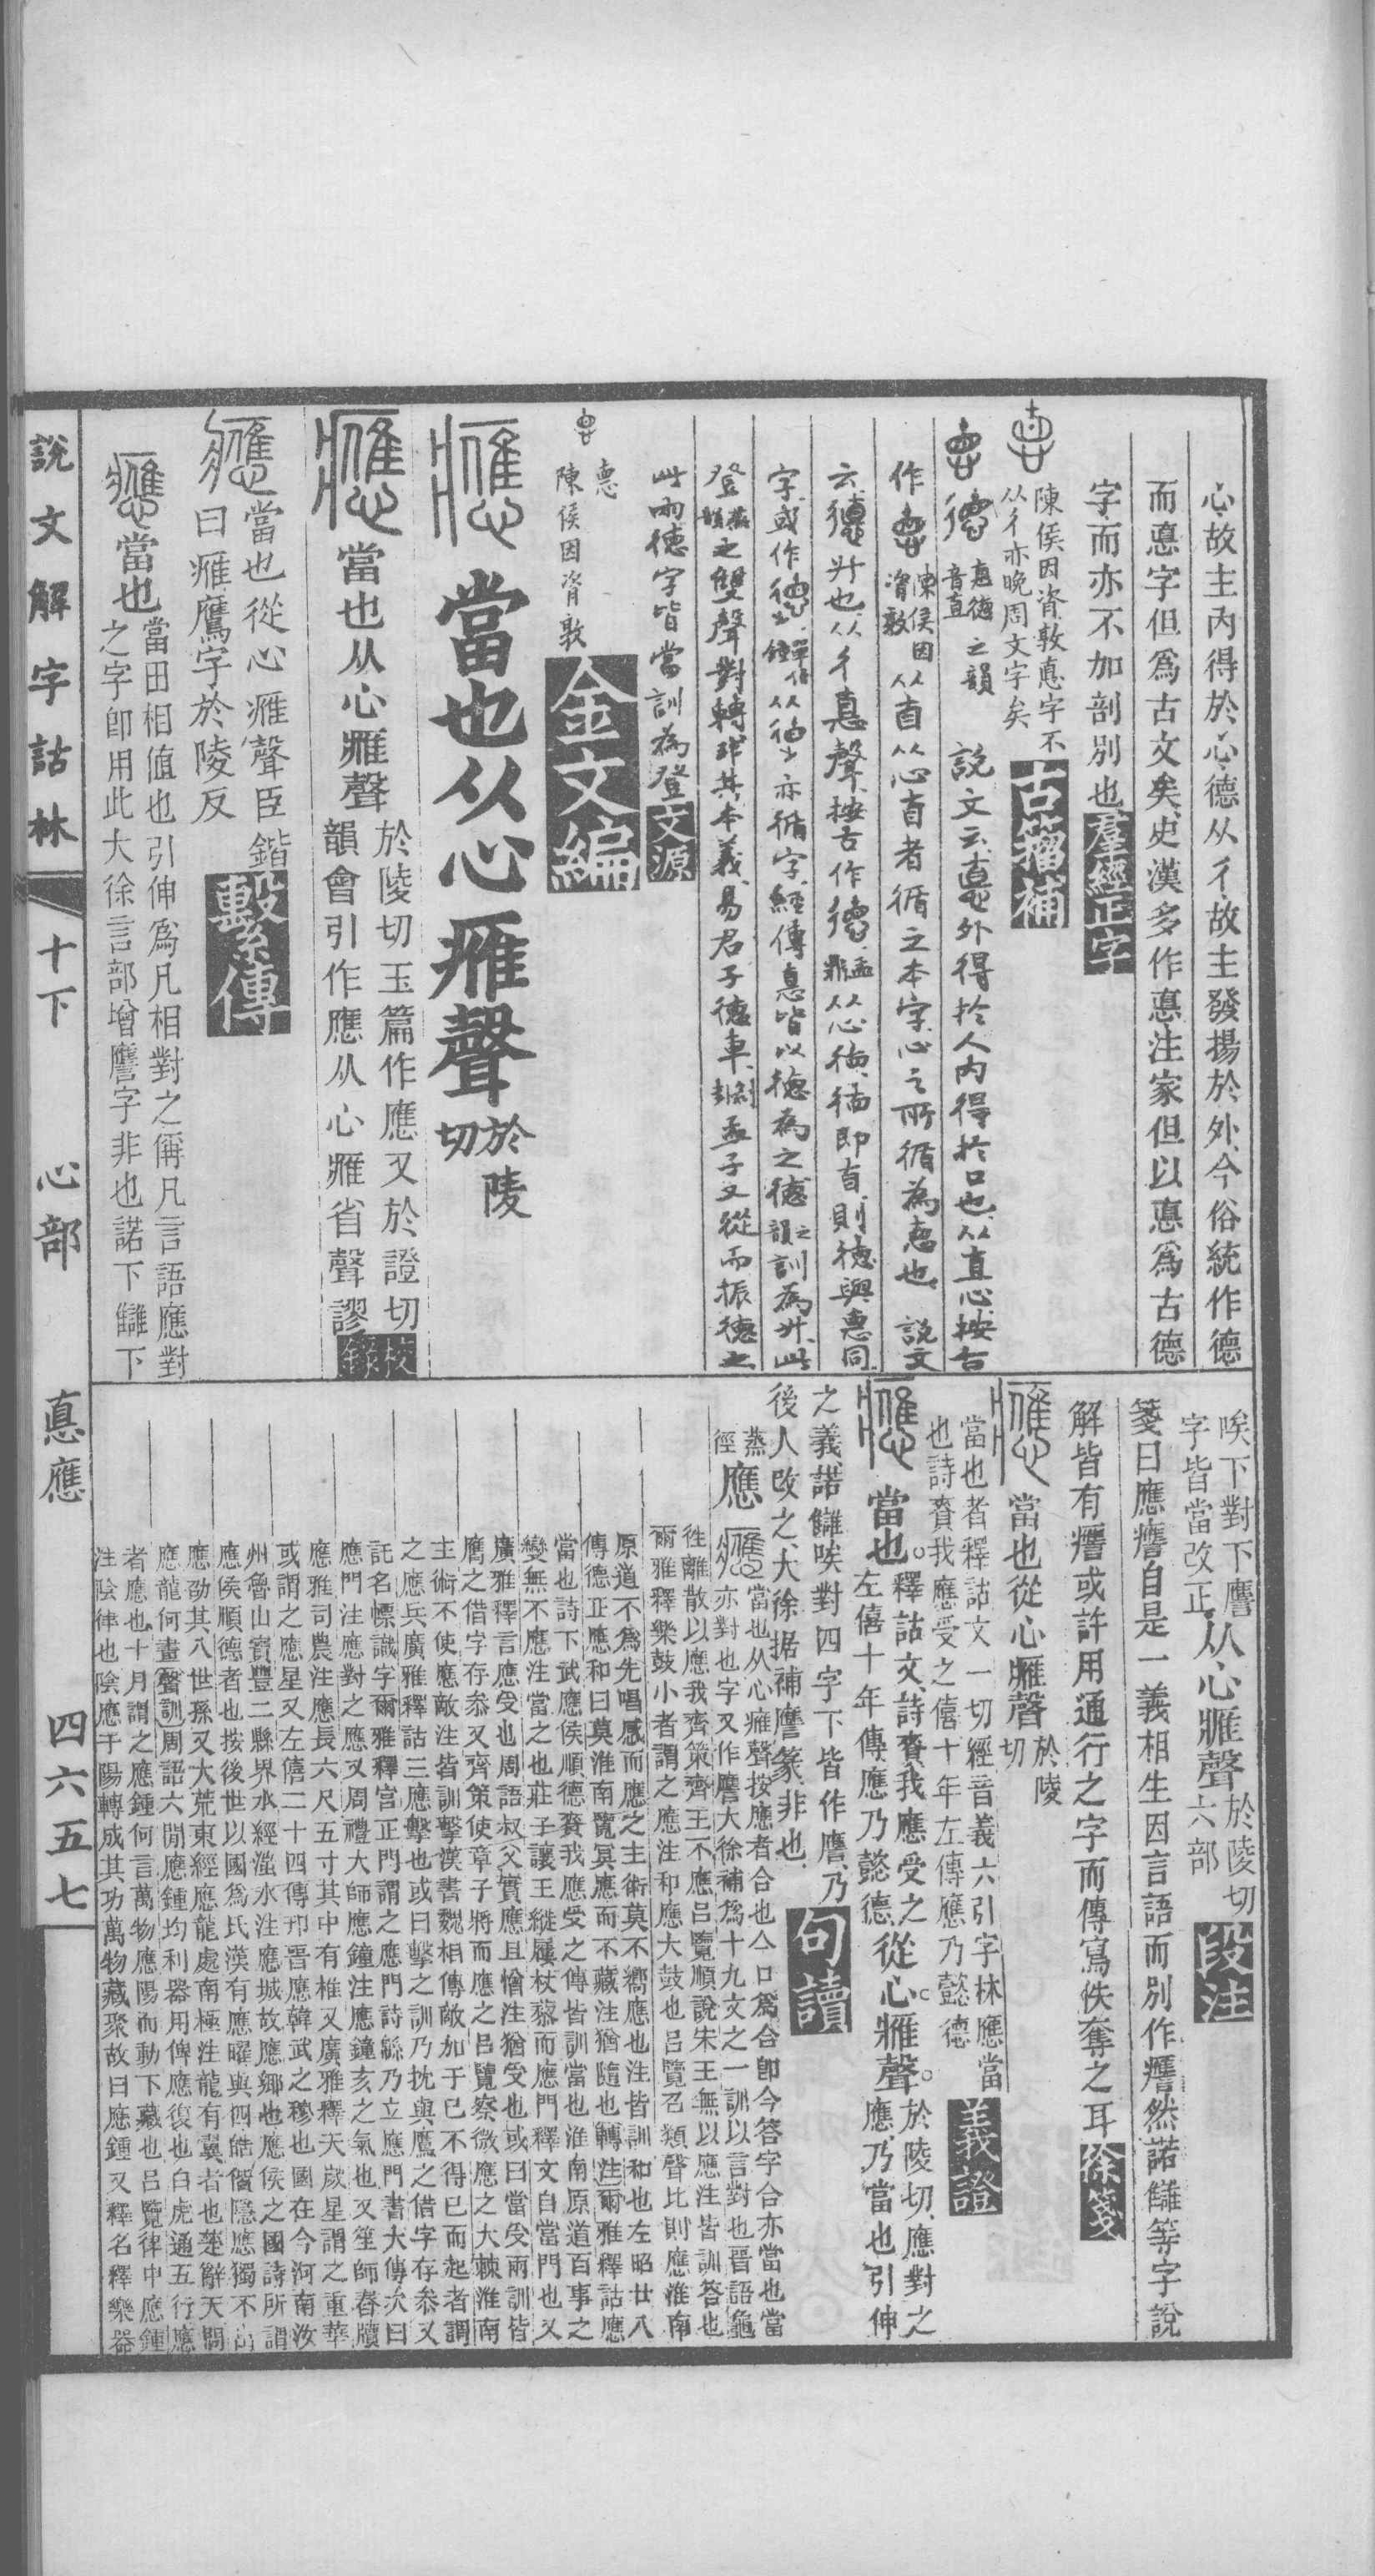 心故主內得於心德从彳故主發揚於外今俗統作德
而悳字但爲古文矣史漢多作悳注家但以悳爲古德
字而亦不加剖別也羣經正字
陳侯因資敦悳字不
从彳亦晚周文字矣
古籀補
悳德之韻
音直
說文云悳外得於人內得於口也从直心按古
作
陳侯因
資敦
从直从心直者循之本字心之所循為悳也
說文
云德升也从彳悳聲按古作德
盂鼎
从心循循即直則德與悳同
字或作德
从亦循字經傳悳皆以德為之德
之韻
訓為升此
登
蒸韻
之雙聲對轉非其本義易君子德車
剝
孟子又從而振德之
此兩德字皆當訓為登文源
悳
陳侯因資敦
金文編
當也从心雁聲
於陵
切
當也从心雁聲
於陵切玉篇作應又於證切
韻會引作應从心雁省聲謬
校錄
當也從心雁聲臣鍇
曰雁鷹字於陵反
繫傳
當也
當田相值也引伸爲凡相對之偁凡言語應對
之字卽用此大徐言部增譍字非也諾下讎下
說文解字詁林
十下
心部
悳應
四六五七
唉下對下譍
字皆當改正
从心雁聲
於陵切
六部
段注
箋曰應譍自是一義相生因言語而別作譍然諾讎等字說
解皆有譍或許用通行之字而傳寫佚奪之耳徐箋
當也從心雁聲
於陵
切
當也者釋詁文一切經音義六引字林應當
也詩賚我應受之僖十年左傳應乃懿德
義證
當也
釋詁文詩賚我應受之
左僖十年傳應乃懿德
從心雁聲
於陵切應對之
應乃當也引伸
之義諾讎唉對四字下皆作譍乃
後人改之大徐据補譍篆非也
句讀
蒸
徑
應
當也从心雁聲按應者合也今口爲合卽今答字合亦當也當
亦對也字又作譍大徐補爲十九文之一訓以言對也晉語龜
往離散以應我齊策齊王不應呂覽順說宋王無以應注皆訓答也
爾雅釋樂鼓小者謂之應注和應大鼓也呂覽召類聲比則應淮南
原道不爲先唱感而應之主術莫不嚮應也注皆訓和也左昭廿八
傳德正應和曰莫淮南覽冥應而不藏注猶隨也轉注爾雅釋詁應
當也詩下武應侯順德賚我應受之傳皆訓當也淮南原道百事之
變無不應注當之也莊子讓王縱屨杖藜而應門釋文自當門也又
廣雅釋言應受也周語叔父實應且憎注猶受也或曰當受兩訓皆
膺之借字存叅又齊策使章子將而應之呂覽察微應之大棘淮南
主術不使應敵注皆訓擊漢書魏相傳敵加于己不得已而起者謂
之應兵廣雅釋詁三應擊也或曰擊之訓乃抌與膺之借字存叅又
託名幖識字爾雅釋宮正門謂之應門詩緜乃立應門書大傳次曰
應門注應對之應又周禮大師應鐘注應鐘亥之氣也又笙師舂牘
應雅司農注應長六尺五寸其中有椎又廣雅釋天歲星謂之重華
或謂之應星又左僖二十四傳邘晉應韓武之穆也國在今河南汝
州魯山寶豐二縣界水經滍水注應城故應鄉也應侯之國詩所謂
應侯順德者也按後世以國爲氏漢有應曜與四皓偕隱應獨不出
應劭其八世孫又大荒東經應龍處南極注龍有翼者也楚辭天問
應龍何畫聲訓周語六閒應鍾均利器用俾應復也白虎通五行應
者應也十月謂之應鍾何言萬物應陽而動下藏也呂覽律中應鍾
注陰律也陰應于陽轉成其功萬物藏聚故曰應鍾又釋名釋樂器